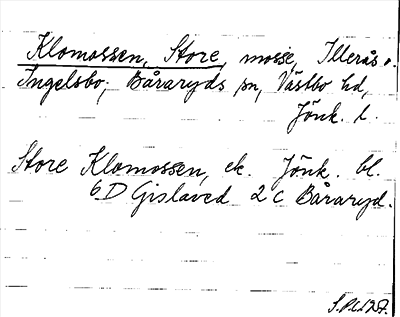 Klomossen, Store, mosse, Illerås o.
Ingelsbo, Båraryds sn, Västbo hd,
Jönk. l.
Store Klomossen, ek. Jönk. bl.
6D Gislaved 2 c Båraryd.